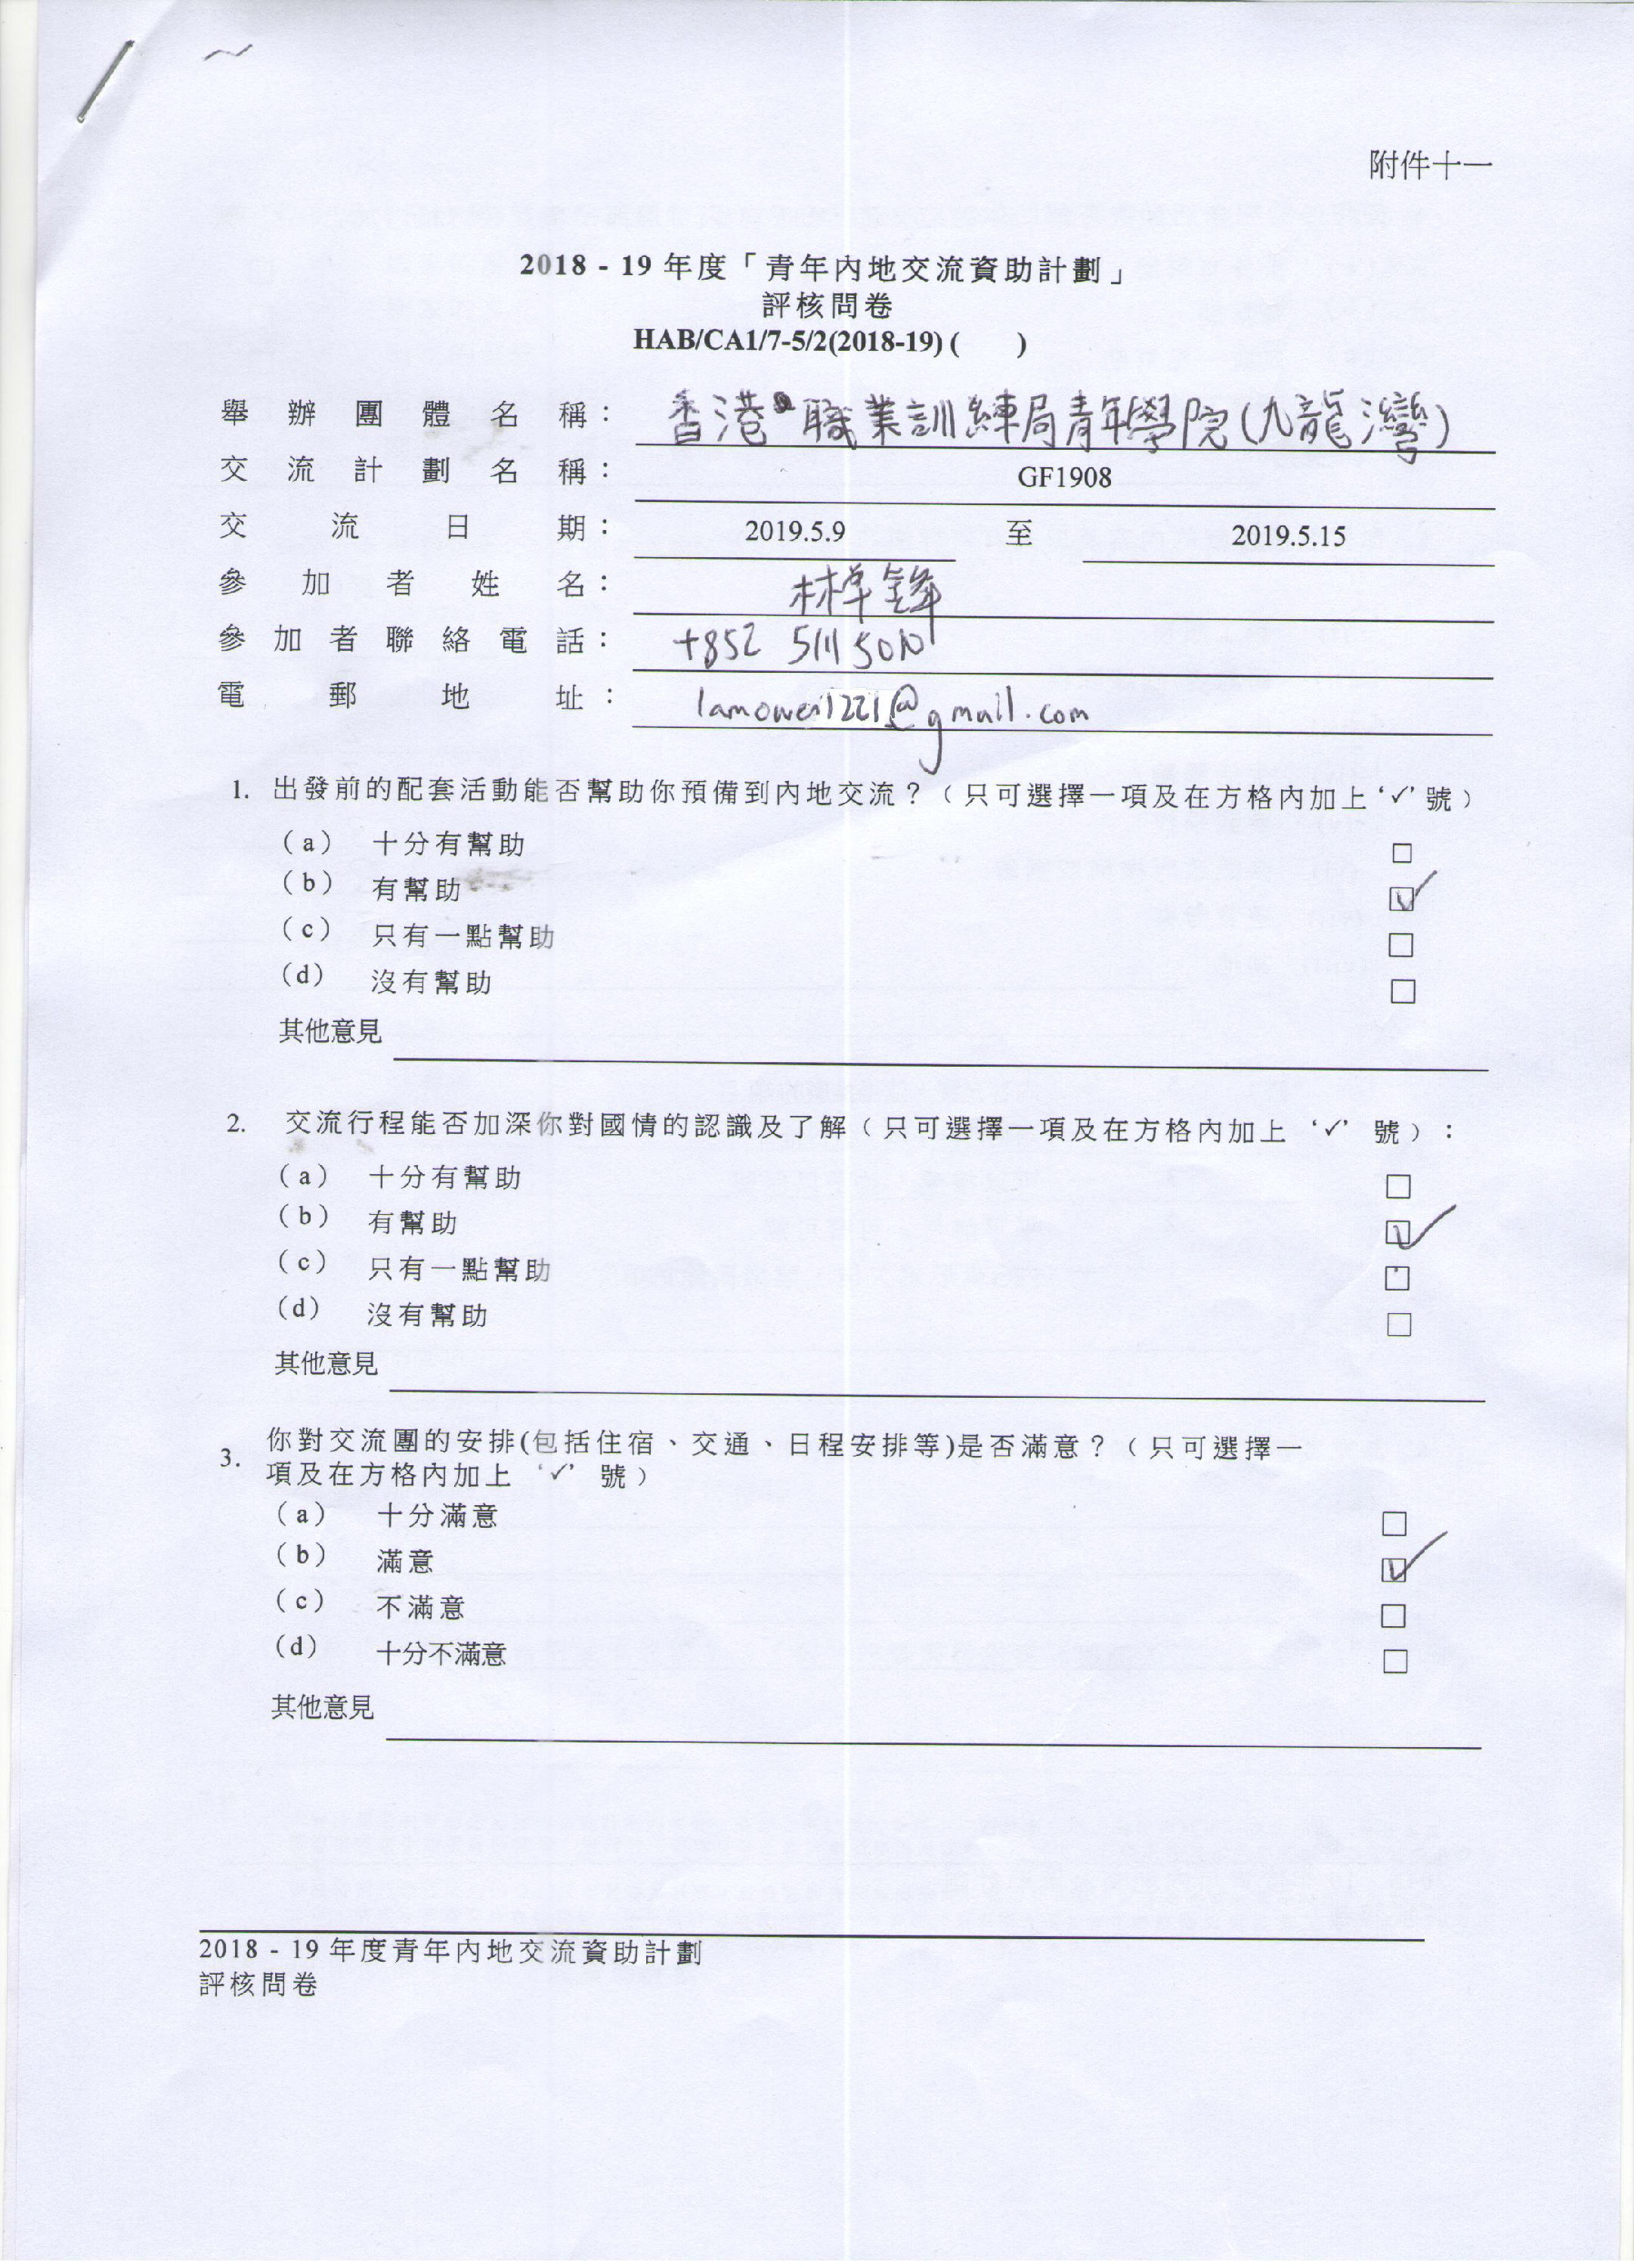 附件十一
2018 - 19 年度「青年內地交流資助計劃」
評核問卷
HAB/CA1/7-5/2(2018-19) (      )
舉辦團體名稱： 香港 職業訓練局青年學院(九龍灣)
交流計劃名稱： GF1908
交流日期： 2019.5.9 至 2019.5.15
參加者姓名： 林焯鋒
參加者聯絡電話： +852 5111 5010
電郵地址：
1. 出發前的配套活動能否幫助你預備到內地交流？（只可選擇一項及在方格內加上 ‘✓’ 號）
(a) 十分有幫助 ☐
(b) 有幫助 ☑
(c) 只有一點幫助 ☐
(d) 沒有幫助 ☐
其他意見
2. 交流行程能否加深你對國情的認識及了解（只可選擇一項及在方格內加上 ‘✓’ 號）：
(a) 十分有幫助 ☐
(b) 有幫助 ☑
(c) 只有一點幫助 ☐
(d) 沒有幫助 ☐
其他意見
3. 你對交流團的安排(包括住宿、交通、日程安排等)是否滿意？（只可選擇一
項及在方格內加上 ‘✓’ 號）
(a) 十分滿意 ☐
(b) 滿意 ☑
(c) 不滿意 ☐
(d) 十分不滿意 ☐
其他意見
2018 - 19 年度青年內地交流資助計劃
評核問卷